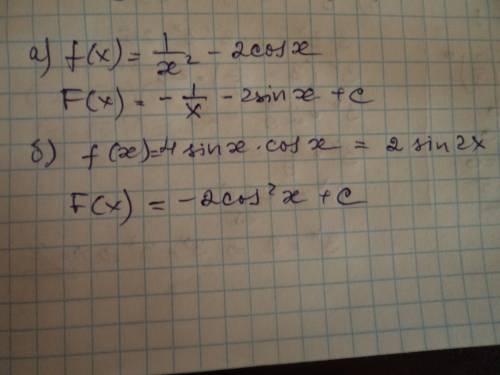 а) f(x) = 1/x² - 2cosx
F(x) = - 1/x - 2sinx + c
б) f(x) = 4 sinx · cosx = 2 sin2x
F(x) = -2cos²x + c